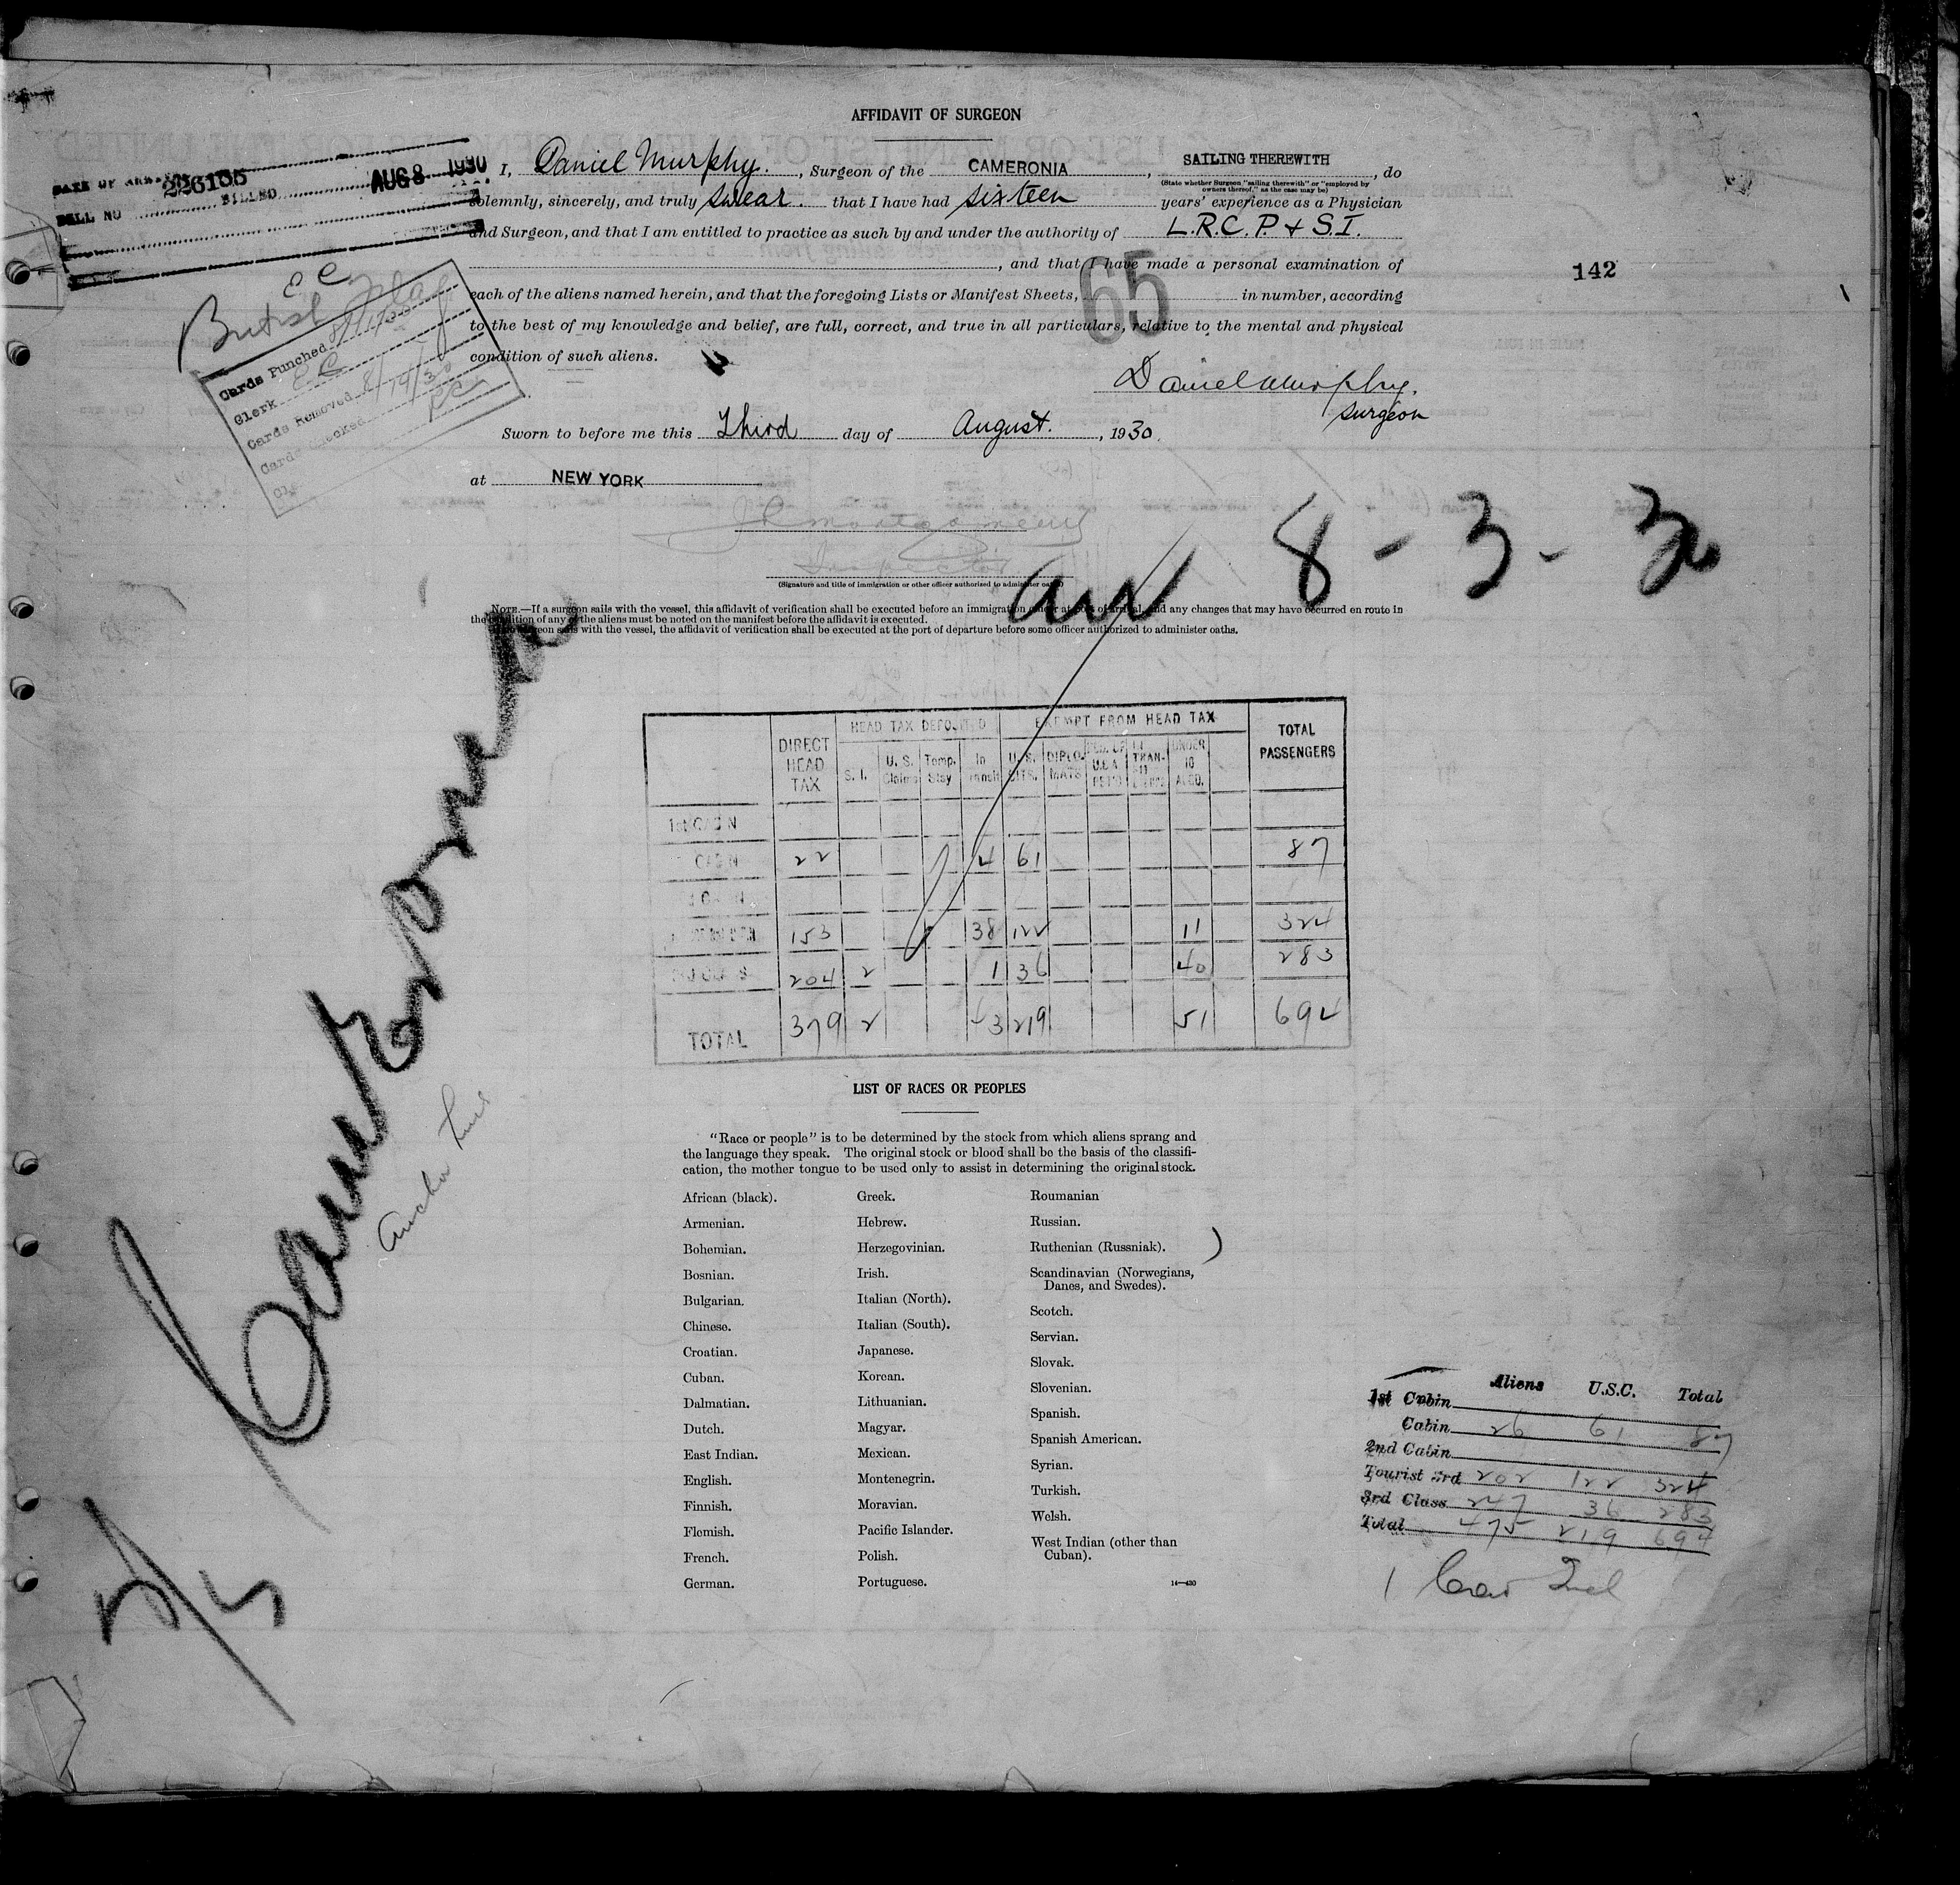 AFFIDAVIT OF SURGEON
226135
AUG 8 1930
BILL NO BILLED
I, Daniel Murphy. , Surgeon of the CAMERONIA , SAILING THEREWITH , do
(State whether Surgeon "sailing therewith" or "employed by
owners thereof," as the case may be)
solemnly, sincerely, and truly swear. that I have had sixteen years' experience as a Physician
and Surgeon, and that I am entitled to practice as such by and under the authority of L.R.C.P. & S.I.
, and that I have made a personal examination of
each of the aliens named herein, and that the foregoing Lists or Manifest Sheets, 65 in number, according
to the best of my knowledge and belief, are full, correct, and true in all particulars, relative to the mental and physical
condition of such aliens.
142
Daniel Murphy.
Surgeon
Sworn to before me this Third day of August. , 1930.
at NEW YORK
Inspector
(Signature and title of immigration or other officer authorized to administer oaths)
E C
British
Cards Punched
Clerk E C
Cards Removed 8/19/30
Cards Checked
8 - 3 - 30
arr
NOTE.—If a surgeon sails with the vessel, this affidavit of verification shall be executed before an immigration officer at port of arrival, and any changes that may have occurred en route in
the condition of any of the aliens must be noted on the manifest before the affidavit is executed.
surgeon sails with the vessel, the affidavit of verification shall be executed at the port of departure before some officer authorized to administer oaths.
Cameronia
Anchor Line
DIRECT HEAD TAX HEAD TAX DEPOSITED EXEMPT FROM HEAD TAX TOTAL PASSENGERS
S. I. U. S. Claims Temp. Stay In Transit U. S. CITS. DIPLOMATS UNDER 16
1st CABIN
CABIN 22 4 61 87
153 38 122 11 324
204 2 1 36 40 283
TOTAL 379 2 43 219 51 694
LIST OF RACES OR PEOPLES
"Race or people" is to be determined by the stock from which aliens sprang and
the language they speak. The original stock or blood shall be the basis of the classifi-
cation, the mother tongue to be used only to assist in determining the original stock.
African (black).
Armenian.
Bohemian.
Bosnian.
Bulgarian.
Chinese.
Croatian.
Cuban.
Dalmatian.
Dutch.
East Indian.
English.
Finnish.
Flemish.
French.
German.
Greek.
Hebrew.
Herzegovinian.
Irish.
Italian (North).
Italian (South).
Japanese.
Korean.
Lithuanian.
Magyar.
Mexican.
Montenegrin.
Moravian.
Pacific Islander.
Polish.
Portuguese.
Roumanian
Russian.
Ruthenian (Russniak).
Scandinavian (Norwegians,
Danes, and Swedes).
Scotch.
Servian.
Slovak.
Slovenian.
Spanish.
Spanish American.
Syrian.
Turkish.
Welsh.
West Indian (other than
Cuban).
14—430
Aliens U.S.C. Total
1st Cabin
Cabin 26 61 87
2nd Cabin
Tourist 3rd 202 122 324
3rd Class 247 36 283
Total 475 219 694